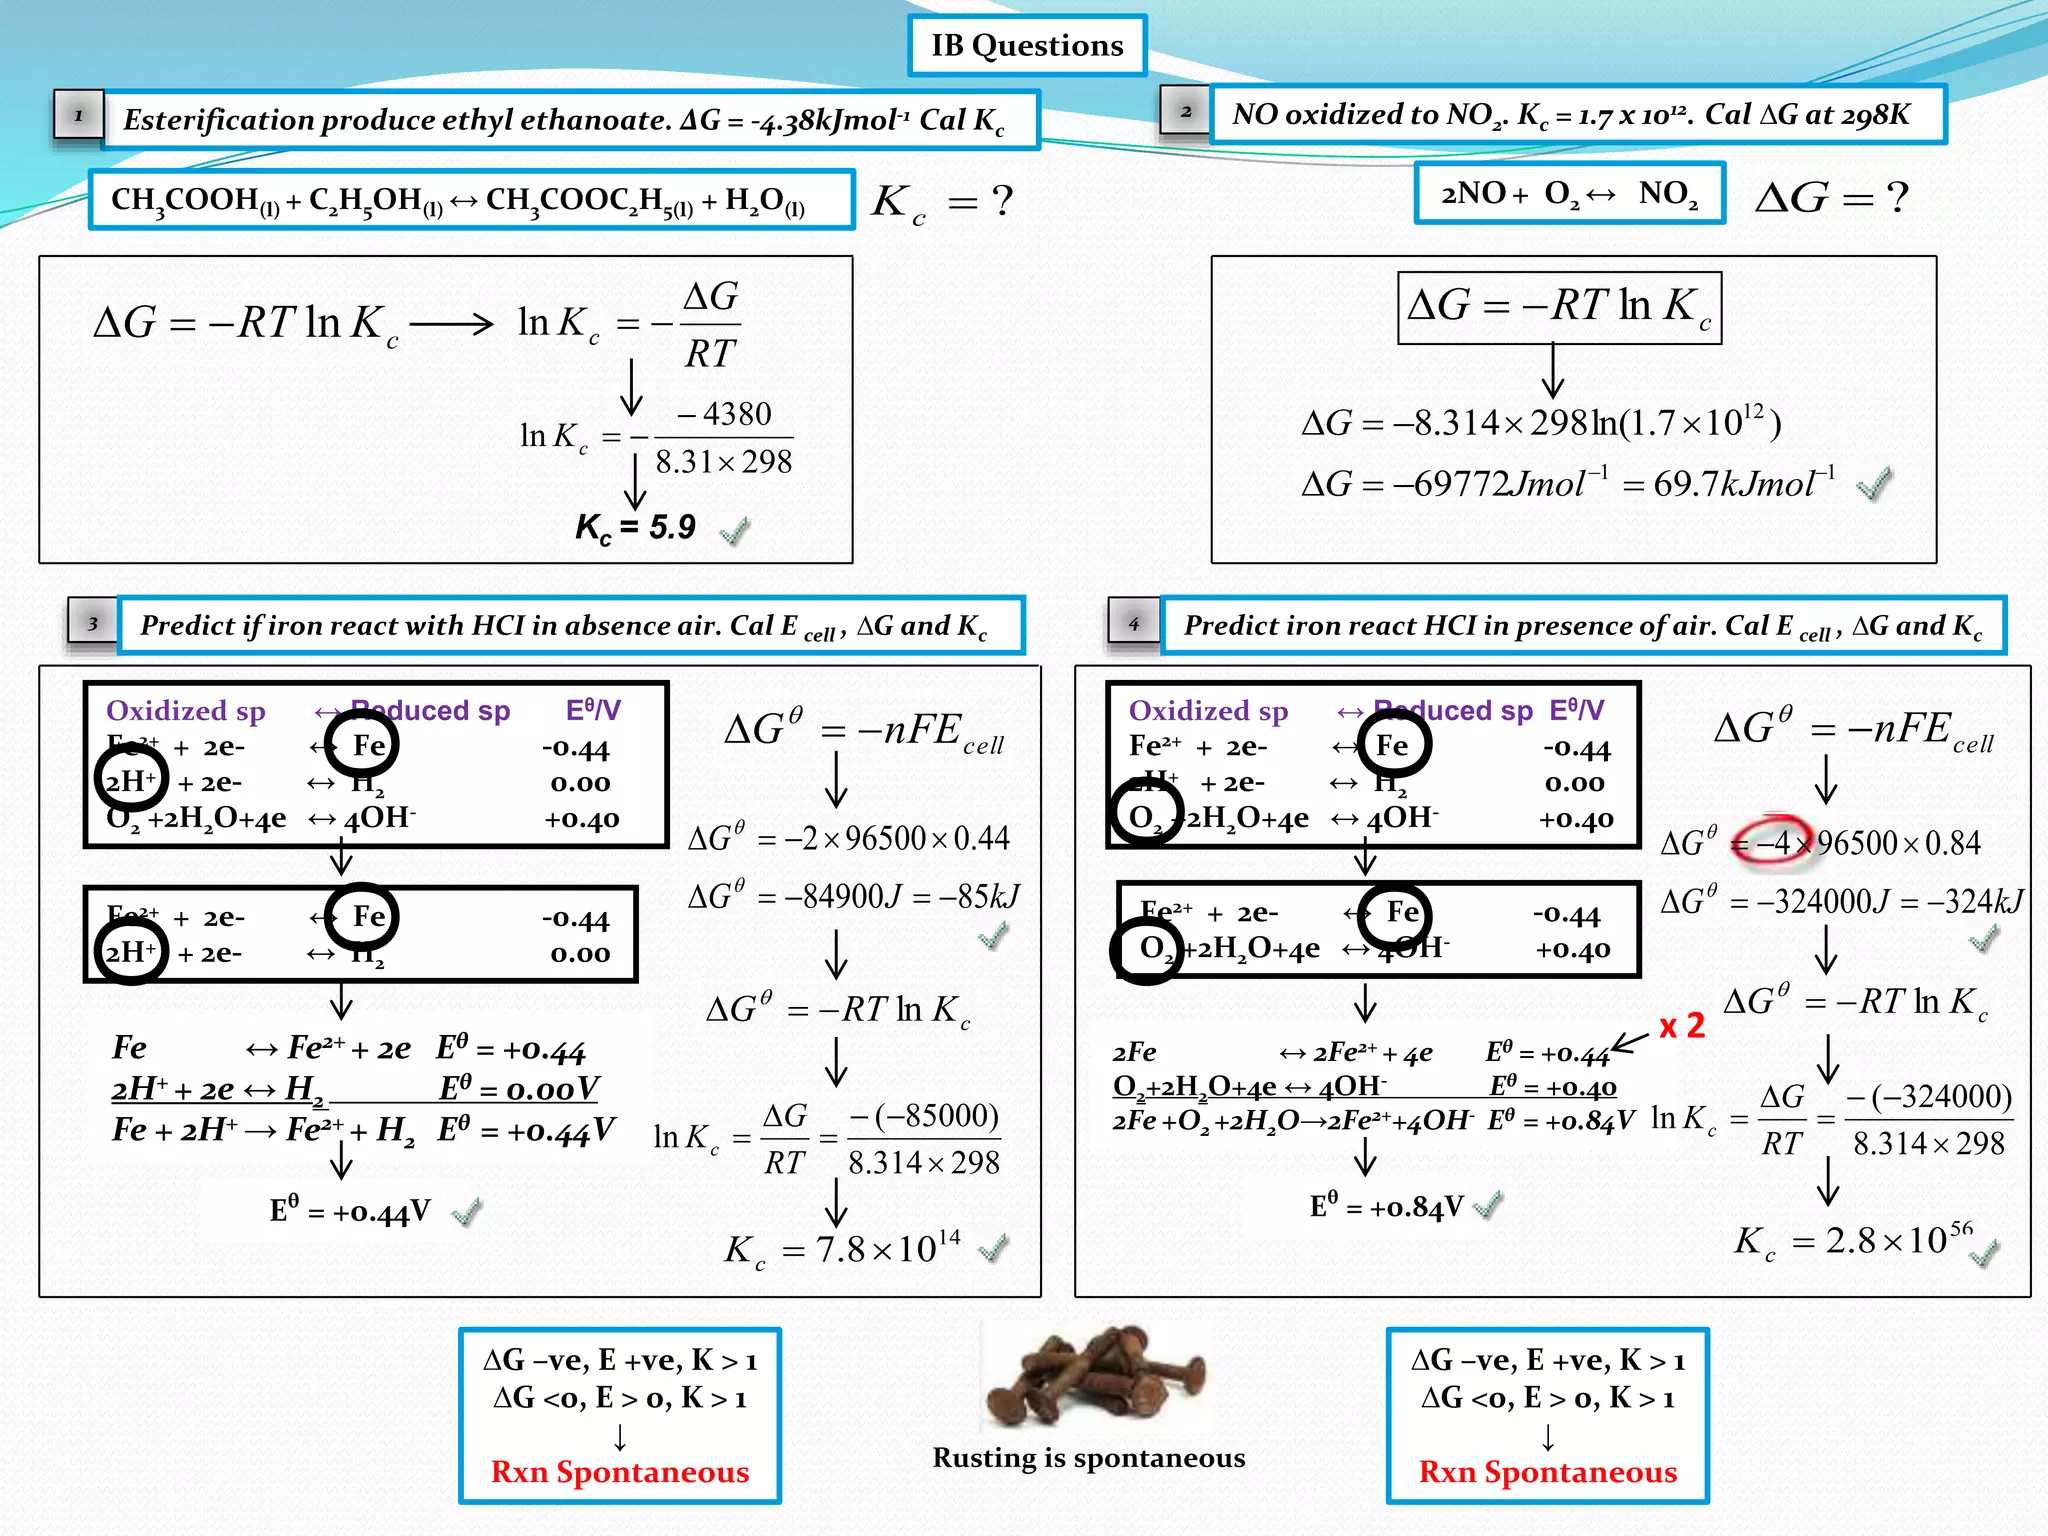 IB Questions
1
Esterification produce ethyl ethanoate. ΔG = -4.38kJmol⁻¹ Cal K꜀
CH₃COOH₍ₗ₎ + C₂H₅OH₍ₗ₎ ↔ CH₃COOC₂H₅₍ₗ₎ + H₂O₍ₗ₎
K_c = ?
ΔG = −RT ln K_c
ln K_c = − ΔG / RT
ln K_c = − −4380 / 8.31 × 298
K_c = 5.9
2
NO oxidized to NO₂. K_c = 1.7 x 10¹². Cal ∆G at 298K
2NO + O₂ ↔ NO₂
ΔG = ?
ΔG = −RT ln K_c
ΔG = −8.314 × 298 ln(1.7 × 10¹²)
ΔG = −69772Jmol⁻¹ = 69.7kJmol⁻¹
3
Predict if iron react with HCI in absence air. Cal E cell , ∆G and K_c
Oxidized sp ↔ Reduced sp Eᶿ/V
Fe²⁺ + 2e- ↔ Fe -0.44
2H⁺ + 2e- ↔ H₂ 0.00
O₂ +2H₂O+4e ↔ 4OH⁻ +0.40
Fe²⁺ + 2e- ↔ Fe -0.44
2H⁺ + 2e- ↔ H₂ 0.00
Fe ↔ Fe²⁺ + 2e Eᶿ = +0.44
2H⁺ + 2e ↔ H₂ Eᶿ = 0.00V
Fe + 2H⁺ → Fe²⁺ + H₂ Eᶿ = +0.44V
Eᶿ = +0.44V
ΔGᶿ = −nFE_cell
ΔGᶿ = −2 × 96500 × 0.44
ΔGᶿ = −84900J = −85kJ
ΔGᶿ = −RT ln K_c
ln K_c = ΔG / RT = −(−85000) / 8.314 × 298
K_c = 7.8 × 10¹⁴
4
Predict iron react HCI in presence of air. Cal E cell , ∆G and K_c
Oxidized sp ↔ Reduced sp Eᶿ/V
Fe²⁺ + 2e- ↔ Fe -0.44
2H⁺ + 2e- ↔ H₂ 0.00
O₂ +2H₂O+4e ↔ 4OH⁻ +0.40
Fe²⁺ + 2e- ↔ Fe -0.44
O₂ +2H₂O+4e ↔ 4OH⁻ +0.40
x 2
2Fe ↔ 2Fe²⁺ + 4e Eᶿ = +0.44
O₂+2H₂O+4e ↔ 4OH⁻ Eᶿ = +0.40
2Fe +O₂ +2H₂O→2Fe²⁺+4OH⁻ Eᶿ = +0.84V
Eᶿ = +0.84V
ΔGᶿ = −nFE_cell
ΔGᶿ = −4 × 96500 × 0.84
ΔGᶿ = −324000J = −324kJ
ΔGᶿ = −RT ln K_c
ln K_c = ΔG / RT = −(−324000) / 8.314 × 298
K_c = 2.8 × 10⁵⁶
∆G –ve, E +ve, K > 1
∆G <0, E > 0, K > 1
↓
Rxn Spontaneous
Rusting is spontaneous
∆G –ve, E +ve, K > 1
∆G <0, E > 0, K > 1
↓
Rxn Spontaneous